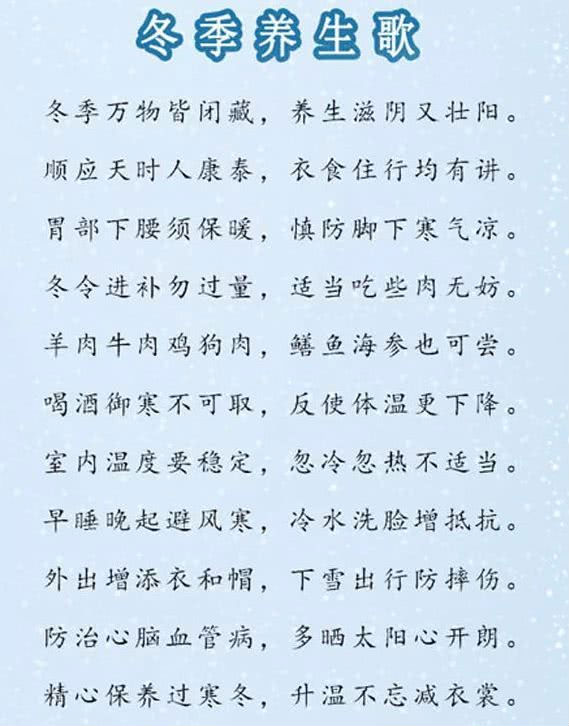 冬季养生歌
冬季万物皆闭藏，养生滋阴又壮阳。
顺应天时人康泰，衣食住行均有讲。
胃部下腰须保暖，慎防脚下寒气凉。
冬令进补勿过量，适当吃些肉无妨。
羊肉牛肉鸡狗肉，鳝鱼海参也可尝。
喝酒御寒不可取，反使体温更下降。
室内温度要稳定，忽冷忽热不适当。
早睡晚起避风寒，冷水洗脸增抵抗。
外出增添衣和帽，下雪出行防摔伤。
防治心脑血管病，多晒太阳心开朗。
精心保养过寒冬，升温不忘减衣裳。